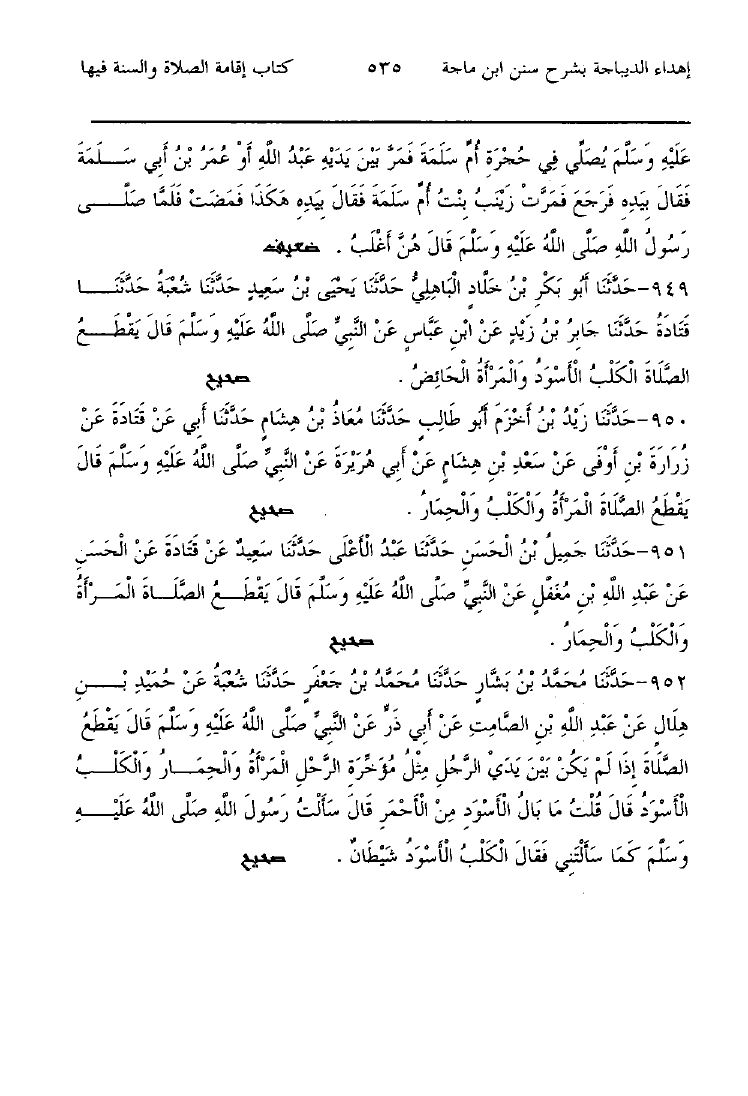 إهداء الديباجة بشرح سنن ابن ماجة ٥٣٥ كتاب إقامة الصلاة والسنة فيها
عَلَيْهِ وَسَلَّمَ يُصَلِّي فِي حُجْرَةِ أُمِّ سَلَمَةَ فَمَرَّ بَيْنَ يَدَيْهِ عَبْدُ اللَّهِ أَوْ عُمَرُ بْنُ أَبِي سَـــلَمَةَ
فَقَالَ بِيَدِهِ فَرَجَعَ فَمَرَّتْ زَيْنَبُ بِنْتُ أُمِّ سَلَمَةَ فَقَالَ بِيَدِهِ هَكَذَا فَمَضَتْ فَلَمَّا صَلَّـــى
رَسُولُ اللَّهِ صَلَّى اللَّهُ عَلَيْهِ وَسَلَّمَ قَالَ هُنَّ أَغْلَبُ . ضعيف
٩٤٩-حَدَّثَنَا أَبُو بَكْرِ بْنُ خَلَّادٍ الْبَاهِلِيُّ حَدَّثَنَا يَحْيَى بْنُ سَعِيدٍ حَدَّثَنَا شُعْبَةُ حَدَّثَنَـــا
قَتَادَةُ حَدَّثَنَا جَابِرُ بْنُ زَيْدٍ عَنْ ابْنِ عَبَّاسٍ عَنْ النَّبِيِّ صَلَّى اللَّهُ عَلَيْهِ وَسَلَّمَ قَالَ يَقْطَـــعُ
الصَّلَاةَ الْكَلْبُ الْأَسْوَدُ وَالْمَرْأَةُ الْحَائِضُ . صحيح
٩٥٠-حَدَّثَنَا زَيْدُ بْنُ أَخْزَمَ أَبُو طَالِبٍ حَدَّثَنَا مُعَاذُ بْنُ هِشَامٍ حَدَّثَنَا أَبِي عَنْ قَتَادَةَ عَنْ
زُرَارَةَ بْنِ أَوْفَى عَنْ سَعْدِ بْنِ هِشَامٍ عَنْ أَبِي هُرَيْرَةَ عَنْ النَّبِيِّ صَلَّى اللَّهُ عَلَيْهِ وَسَلَّمَ قَالَ
يَقْطَعُ الصَّلَاةَ الْمَرْأَةُ وَالْكَلْبُ وَالْحِمَارُ . صحيح
٩٥١-حَدَّثَنَا جَمِيلُ بْنُ الْحَسَنِ حَدَّثَنَا عَبْدُ الْأَعْلَى حَدَّثَنَا سَعِيدٌ عَنْ قَتَادَةَ عَنْ الْحَسَنِ
عَنْ عَبْدِ اللَّهِ بْنِ مُغَفَّلٍ عَنْ النَّبِيِّ صَلَّى اللَّهُ عَلَيْهِ وَسَلَّمَ قَالَ يَقْطَـــعُ الصَّلَـــاةَ الْمَـــرْأَةُ
وَالْكَلْبُ وَالْحِمَارُ . صحيح
٩٥٢-حَدَّثَنَا مُحَمَّدُ بْنُ بَشَّارٍ حَدَّثَنَا مُحَمَّدُ بْنُ جَعْفَرٍ حَدَّثَنَا شُعْبَةُ عَنْ حُمَيْدِ بْـــنِ
هِلَالٍ عَنْ عَبْدِ اللَّهِ بْنِ الصَّامِتِ عَنْ أَبِي ذَرٍّ عَنْ النَّبِيِّ صَلَّى اللَّهُ عَلَيْهِ وَسَلَّمَ قَالَ يَقْطَعُ
الصَّلَاةَ إِذَا لَمْ يَكُنْ بَيْنَ يَدَيْ الرَّجُلِ مِثْلُ مُؤَخِّرَةِ الرَّحْلِ الْمَرْأَةُ وَالْحِمَـــارُ وَالْكَلْـــبُ
الْأَسْوَدُ قَالَ قُلْتُ مَا بَالُ الْأَسْوَدِ مِنْ الْأَحْمَرِ قَالَ سَأَلْتُ رَسُولَ اللَّهِ صَلَّى اللَّهُ عَلَيْـــهِ
وَسَلَّمَ كَمَا سَأَلْتَنِي فَقَالَ الْكَلْبُ الْأَسْوَدُ شَيْطَانٌ . صحيح